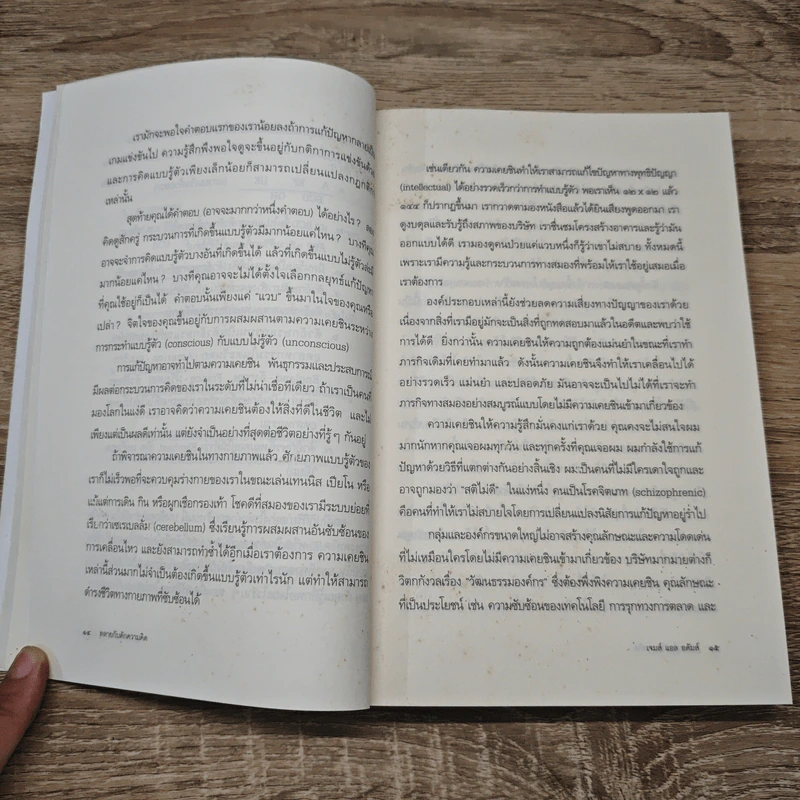 เรามักจะพอใจคำตอบแรกของเราน้อยลงถ้าการแก้ปัญหากลายเป็น
เกมแข่งขันไป ความรู้สึกพึงพอใจดูจะขึ้นอยู่กับกติกาการแข่งขันด้วย
และการคิดแบบรู้ตัวเพียงเล็กน้อยก็สามารถเปลี่ยนแปลงกฎกติกา
เหล่านั้น
สุดท้ายคุณได้คำตอบ (อาจจะมากกว่าหนึ่งคำตอบ) ได้อย่างไร?
คิดดูสักครู่ กระบวนการที่เกิดขึ้นแบบรู้ตัวมีมากน้อยแค่ไหน? บางทีคุณ
อาจจะจำการคิดแบบรู้ตัวบางอันที่เกิดขึ้นได้ แล้วที่เกิดขึ้นแบบไม่รู้ตัวล่ะมี
มากน้อยแค่ไหน? บางทีคุณอาจจะไม่ได้ตั้งใจเลือกกลยุทธ์แก้ปัญหา
ที่คุณใช้อยู่ก็เป็นได้ คำตอบนั้นเพียงแค่ "แวบ" ขึ้นมาในใจของคุณหรือ
เปล่า? จิตใจของคุณขึ้นอยู่กับการผสมผสานตามความเคยชินระหว่าง
การกระทำแบบรู้ตัว (conscious) กับแบบไม่รู้ตัว (unconscious)
การแก้ปัญหาอาจทำไปตามความเคยชิน พันธุกรรมและประสบการณ์
มีผลต่อกระบวนการคิดของเราในระดับที่ไม่น่าเชื่อทีเดียว ถ้าเราเป็นคนที่
มองโลกในแง่ดี เราอาจคิดว่าความเคยชินต้องให้สิ่งที่ดีในชีวิต และไม่
เพียงแต่เป็นผลดีเท่านั้น แต่ยังจำเป็นอย่างที่สุดต่อชีวิตอย่างที่รู้ๆ กันอยู่
ถ้าพิจารณาความเคยชินในทางกายภาพแล้ว ศักยภาพแบบรู้ตัวของ
เราก็ไม่เร็วพอที่จะควบคุมร่างกายของเราในขณะเล่นเทนนิส เปียโน หรือ
แม้แต่การเดิน กิน หรือผูกเชือกรองเท้า โชคดีที่สมองของเรามีระบบย่อยที่
เรียกว่าเซเรเบลลั่ม (cerebellum) ซึ่งเรียนรู้การผสมผสานอันซับซ้อนของ
การเคลื่อนไหว และยังสามารถทำซ้ำได้อีกเมื่อเราต้องการ ความเคยชิน
เหล่านี้ส่วนมากไม่จำเป็นต้องเกิดขึ้นแบบรู้ตัวเท่าไรนัก แต่ทำให้สามารถ
ดำรงชีวิตทางกายภาพที่ซับซ้อนได้
๑๔ ทลายกับดักความคิด
เช่นเดียวกัน ความเคยชินทำให้เราสามารถแก้ไขปัญหาทางพุทธิปัญญา
(intellectual) ได้อย่างรวดเร็วกว่าการทำแบบรู้ตัว พอเราเห็น ๑๒ x ๑๒ แล้ว
๑๔๔ ก็ปรากฏขึ้นมา เรากวาดตามองหนังสือแล้วได้ยินเสียงพูดออกมา เรา
ดูงบดุลและรับรู้ถึงสภาพของบริษัท เราชื่นชมโครงสร้างอาคารและรู้ว่ามัน
ออกแบบได้ดี เรามองดูคนป่วยแค่แวบหนึ่งก็รู้ว่าเขาไม่สบาย ทั้งหมดนี้
เพราะเรามีความรู้และกระบวนการทางสมองที่พร้อมให้เราใช้อยู่เสมอเมื่อ
เราต้องการ
องค์ประกอบเหล่านี้ยังช่วยลดความเสี่ยงทางปัญญาของเราด้วย
เนื่องจากสิ่งที่เรามีอยู่มักจะเป็นสิ่งที่ถูกทดสอบมาแล้วในอดีตและพบว่าใช้
การได้ดี ยิ่งกว่านั้น ความเคยชินให้ความถูกต้องแม่นยำในขณะที่เราทำ
ภารกิจเดิมที่เคยทำมาแล้ว ดังนั้นความเคยชินจึงทำให้เราเคลื่อนไปได้
อย่างรวดเร็ว แม่นยำ และปลอดภัย มันอาจจะเป็นไปไม่ได้ที่เราจะทำ
ภารกิจทางสมองอย่างสมบูรณ์แบบโดยไม่มีความเคยชินเข้ามาเกี่ยวข้อง
ความเคยชินให้ความรู้สึกมั่นคงแก่เราด้วย คุณคงจะไม่สนใจผม
มากนักหากคุณเจอผมทุกวัน และทุกครั้งที่คุณเจอผม ผมกำลังใช้การแก้
ปัญหาด้วยวิธีที่แตกต่างกันอย่างสิ้นเชิง ผมเป็นคนที่ไม่มีใครเดาใจถูกและ
อาจถูกมองว่า "สติไม่ดี" ในแง่หนึ่ง คนเป็นโรคจิตเภท (schizophrenic)
คือคนที่ทำให้เราไม่สบายใจโดยการเปลี่ยนแปลงนิสัยการแก้ปัญหาอยู่ร่ำไป
กลุ่มและองค์กรขนาดใหญ่ไม่อาจสร้างคุณลักษณะและความโดดเด่น
ที่ไม่เหมือนใครโดยไม่มีความเคยชินเข้ามาเกี่ยวข้อง บริษัทมากมายต่างก็
วิตกกังวลเรื่อง "วัฒนธรรมองค์กร" ซึ่งต้องพึ่งพิงความเคยชิน คุณลักษณะ
ที่เป็นประโยชน์ เช่น ความซับซ้อนของเทคโนโลยี การรุกทางการตลาด และ
เจมส์ แอล อดัมส์ ๑๕